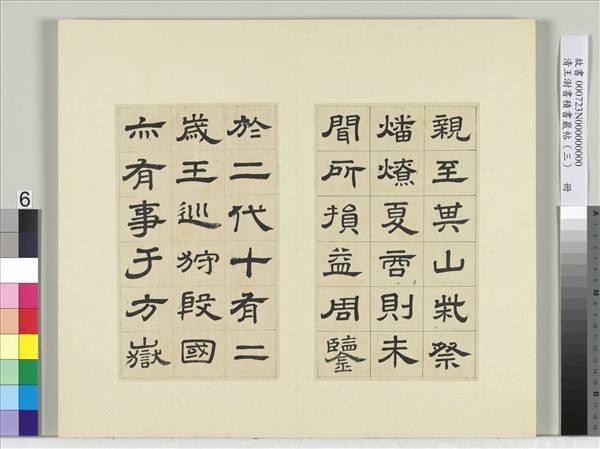 親至其山柴祭
燔燎夏商則未
聞所損益周鑒
於二代十有二
歲王巡狩殷國
亦有事于方嶽
故書 000723N000000000
清王澍書積書巖帖（三） 冊
6